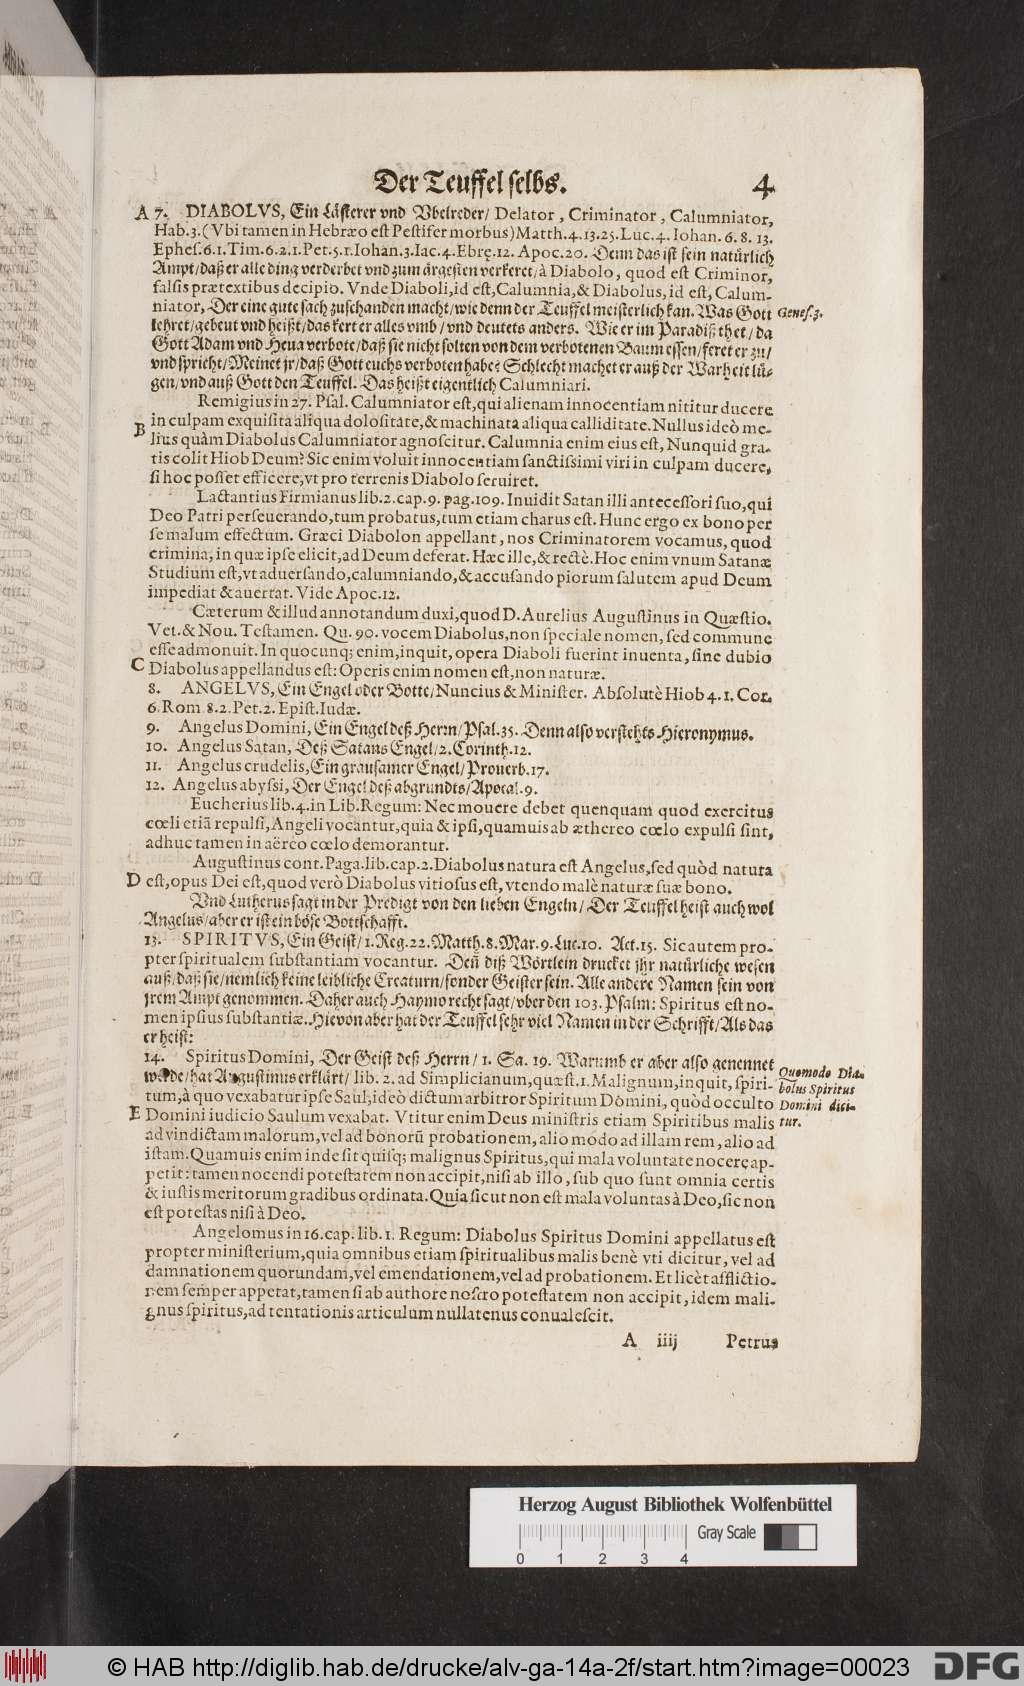 Der Teuffel selbs. 4
A 7. DIABOLVS, Ein Lästerer vnd Vbelreder/ Delator, Criminator, Calumniator,
Hab.3.(Vbi tamen in Hebræo est Pestifer morbus)Matth.4.13.25.Luc.4. Iohan. 6. 8. 13.
Ephes.6.1.Tim.6.2.1.Pet.5.1.Iohan.3.Iac.4.Ebrę.12. Apoc.20. Denn das ist sein natürlich
Ampt/daß er alle ding verderbet vnd zum ärgesten verkeret/à Diabolo, quod est Criminor,
falsis prætextibus decipio. Vnde Diaboli,id est,Calumnia,& Diabolus,id est, Calum-
niator, Der eine gute sach zuschanden macht/wie denn der Teuffel meisterlich kan. Was Gott
Genes.3.
lehret/gebeut vnd heißt/das kert er alles vmb/ vnd deutets anders. Wie er im Paradiß thet/ da
Gott Adam vnd Heua verbote/daß sie nicht solten von dem verbotenen Baum essen/feret er zu/
vnd spricht/Meinet jr/daß Gott euchs verboten habe? Schlecht machet er auß der Warheit lü-
gen/vnd auß Gott den Teuffel. Das heißt eigentlich Calumniari.
Remigius in 27. Psal. Calumniator est,qui alienam innocentiam nititur ducere
in culpam exquisita aliqua dolositate,& machinata aliqua calliditate. Nullus ideò me-
B lius quàm Diabolus Calumniator agnoscitur. Calumnia enim eius est, Nunquid gra-
tis colit Hiob Deum? Sic enim voluit innocentiam sanctissimi viri in culpam ducere,
si hoc posset efficere,vt pro terrenis Diabolo seruiret.
Lactantius Firmianus lib.2.cap.9. pag.109. Inuidit Satan illi antecessori suo,qui
Deo Patri perseuerando,tum probatus,tum etiam charus est. Hunc ergo ex bono per
se malum effectum. Græci Diabolon appellant, nos Criminatorem vocamus, quod
crimina, in quæ ipse elicit,ad Deum deferat. Hæc ille,& rectè. Hoc enim vnum Satanæ
Studium est,vt aduersando,calumniando,& accusando piorum salutem apud Deum
impediat & auertat. Vide Apoc.12.
Cæterum & illud annotandum duxi,quod D. Aurelius Augustinus in Quæstio.
Vet.& Nou. Testamen. Qu. 90. vocem Diabolus,non speciale nomen, sed commune
esse admonuit. In quocunq; enim,inquit, opera Diaboli fuerint inuenta, sine dubio
C Diabolus appellandus est: Operis enim nomen est,non naturæ.
8. ANGELVS, Ein Engel oder Botte/ Nuncius & Minister. Absolutè Hiob 4.1. Cor.
6. Rom.8.2.Pet.2. Epist. Iudæ.
9. Angelus Domini, Ein Engel deß Herrn/Psal.35. Denn also verstehts Hieronymus.
10. Angelus Satan, Deß Satans Engel/2. Corinth.12.
11. Angelus crudelis, Ein grausamer Engel/Prouerb.17.
12. Angelus abyssi, Der Engel deß abgrundts/Apocal.9.
Eucherius lib.4.in Lib. Regum: Nec mouere debet quenquam quod exercitus
cœli etiã repulsi, Angeli vocantur,quia & ipsi, quamuis ab æthereo cœlo expulsi sint,
adhuc tamen in aëreo cœlo demorantur.
Augustinus cont. Paga.lib.cap.2. Diabolus natura est Angelus,sed quòd natura
D est,opus Dei est,quod verò Diabolus vitiosus est, vtendo malè naturæ suæ bono.
Vnd Lutherus sagt in der Predigt von den lieben Engeln/ Der Teuffel heist auch wol
Angelus/aber er ist ein böse Bottschafft.
13. SPIRITVS, Ein Geist/ 1. Reg.22. Matth.8. Mar.9. Luc.10. Act.15. Sic autem pro-
pter spiritualem substantiam vocantur. Deñ diß Wörtlein drucket jhr natürliche wesen
auß/daß sie/nemlich keine leibliche Creaturn/sonder Geister sein. Alle andere Namen sein von
jrem Ampt genommen. Daher auch Haymo recht sagt/vber den 103. Psalm: Spiritus est no-
men ipsius substantiæ. Hievon aber hat der Teuffel sehr viel Namen in der Schrifft/Als das
er heist:
14. Spiritus Domini, Der Geist deß Herrn/ 1. Sa. 19. Warumb er aber also genennet
Quomodo Dia-
bolus Spiritus
Domini dici-
tur.
werde/hat Augustinus erklärt/ lib. 2. ad Simplicianum, quæst.1. Malignum,inquit, spiri-
tum,à quo vexabatur ipse Saul,ideò dictum arbitror Spiritum Domini, quòd occulto
E Domini iudicio Saulum vexabat. Vtitur enim Deus ministris etiam Spiritibus malis
ad vindictam malorum, vel ad bonorũ probationem, alio modo ad illam rem, alio ad
istam. Quamuis enim inde sit quisq; malignus Spiritus,qui mala voluntate nocere ap-
petit: tamen nocendi potestatem non accipit,nisi ab illo, sub quo sunt omnia certis
& iustis meritorum gradibus ordinata. Quia sicut non est mala voluntas à Deo,sic non
est potestas nisi à Deo.
Angelomus in 16.cap. lib. 1. Regum: Diabolus Spiritus Domini appellatus est
propter ministerium,quia omnibus etiam spiritualibus malis benè vti dicitur, vel ad
damnationem quorundam,vel emendationem,vel ad probationem. Et licèt afflictio-
nem semper appetat,tamen si ab authore nostro potestatem non accipit, idem mali-
gnus spiritus,ad tentationis articulum nullatenus conualescit.
A iiij Petrus
Herzog August Bibliothek Wolfenbüttel
Gray Scale
0 1 2 3 4
© HAB http://diglib.hab.de/drucke/alv-ga-14a-2f/start.htm?image=00023 DFG